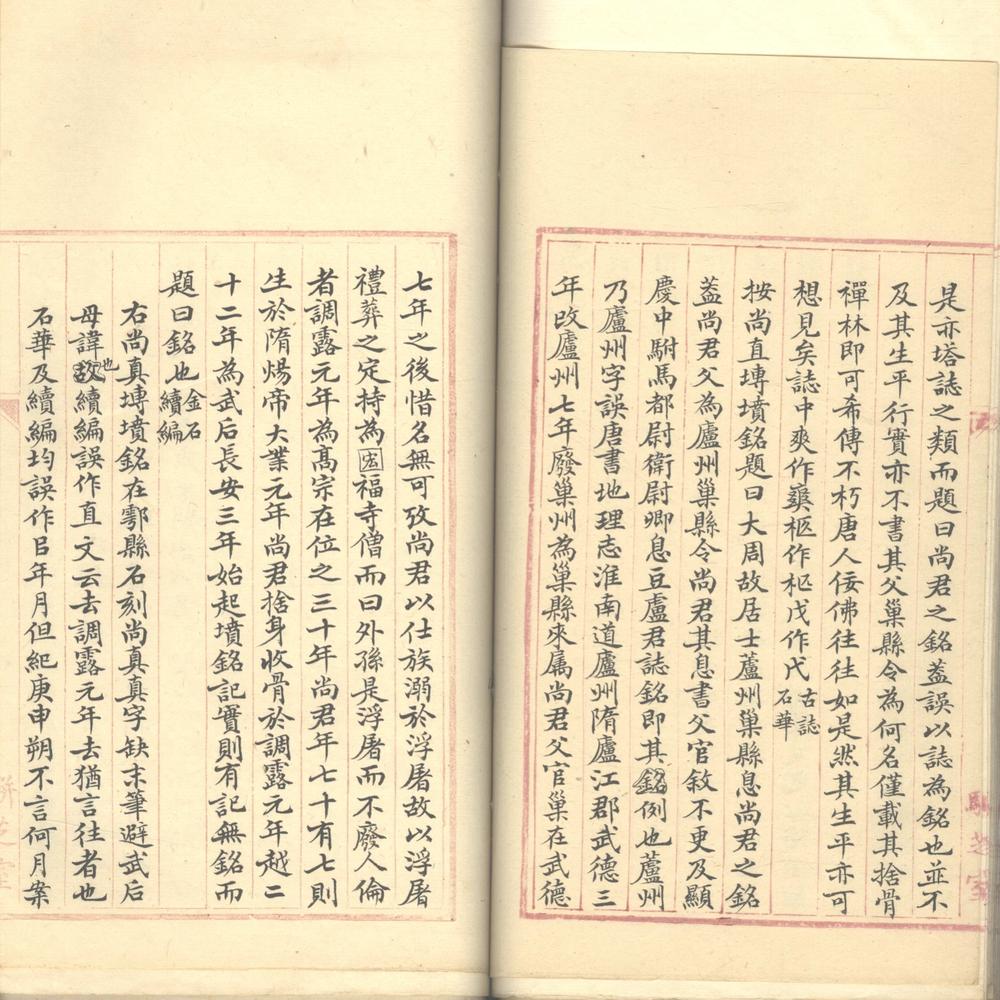 是亦塔誌之類而題曰尚君之銘蓋誤以誌為銘也並不
及其生平行實亦不書其父巢縣令為何名僅載其捨骨
禪林即可希傳不朽唐人佞佛往往如是然其生平亦可
想見矣誌中爽作㼽柩作柩戊作戌古誌石華
按尚直塼墳銘題曰大周故居士蘆州巢縣息尚君之銘
蓋尚君父為廬州巢縣令尚君其息書父官敘不更及顯
慶中駙馬都尉衛尉卿息豆盧君誌銘即其銘例也蘆州
乃廬州字誤唐書地理志淮南道廬州隋廬江郡武德三
年改廬州七年廢巢州為巢縣來屬尚君父官巢在武德
七年之後惜名無可攷尚君以仕族溺於浮屠故以浮屠
禮葬之定持為宏福寺僧而曰外孫是浮屠而不廢人倫
者調露元年為髙宗在位之三十年尚君年七十有七則
生於隋煬帝大業元年尚君捨身收骨於調露元年越二
十二年為武后長安三年始起墳銘記實則有記無銘而
題曰銘也金石續編
右尚真塼墳銘在鄠縣石刻尚真真字缺末筆避武后
母諱也故續編誤作直文云去調露元年去猶言往者也
石華及續編均誤作㠯年月但紀庚申朔不言何月案